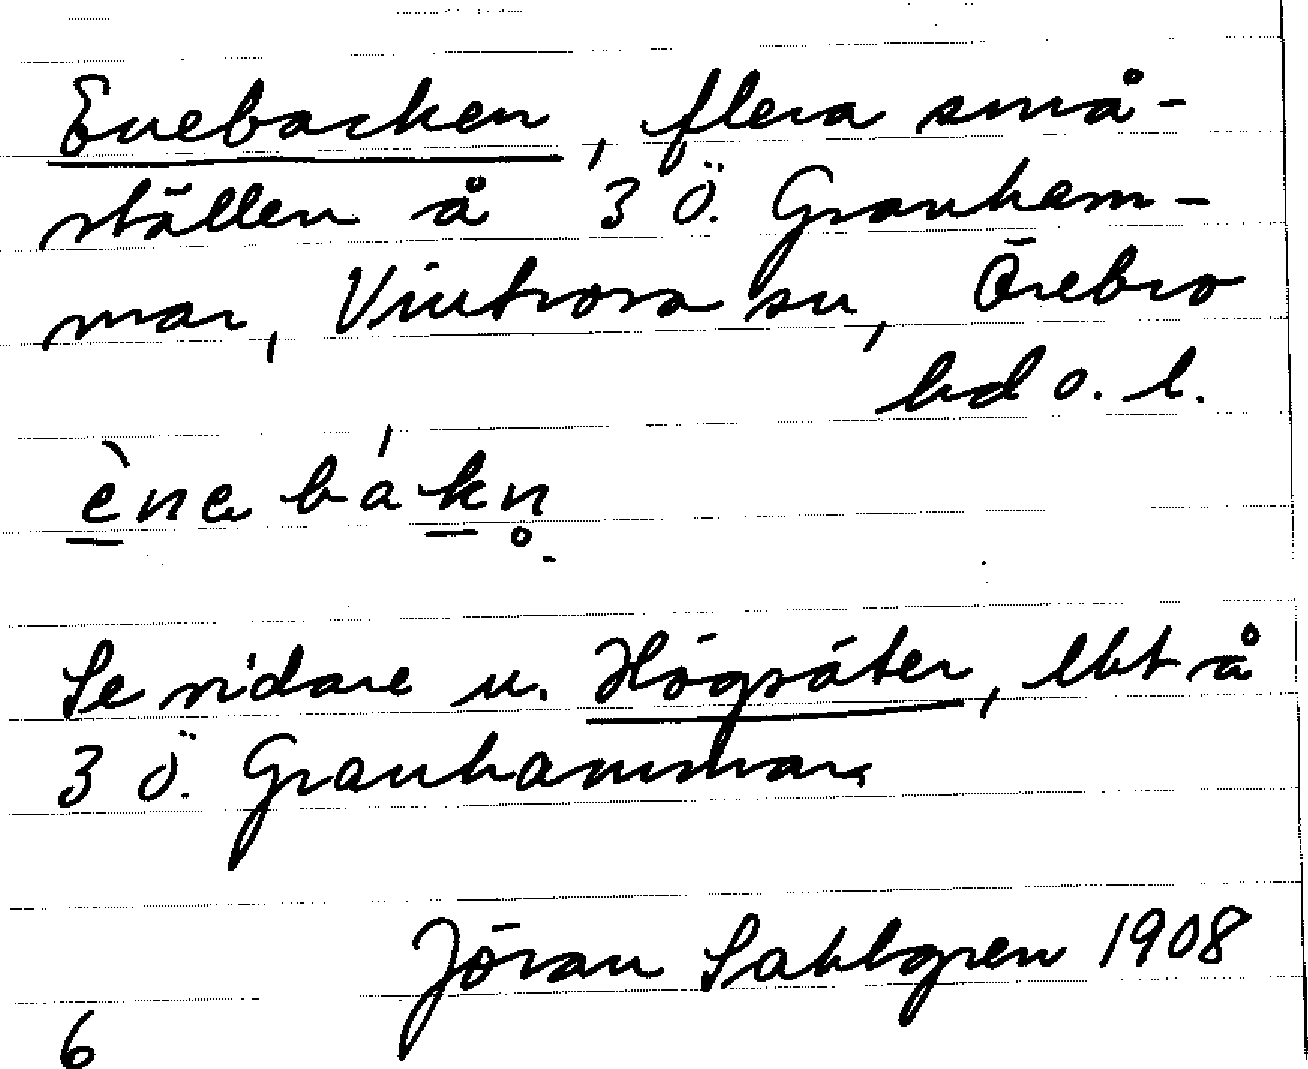 Enebacken, flera små-
ställen å 3 Ö. Granham-
mar, Vintrosa sn, Örebro
hd o. l.
ènabákn̥
Se vidare u. Högsäter, lht å
3 Ö. Granhammar.
Jöran Sahlgren 1908
6